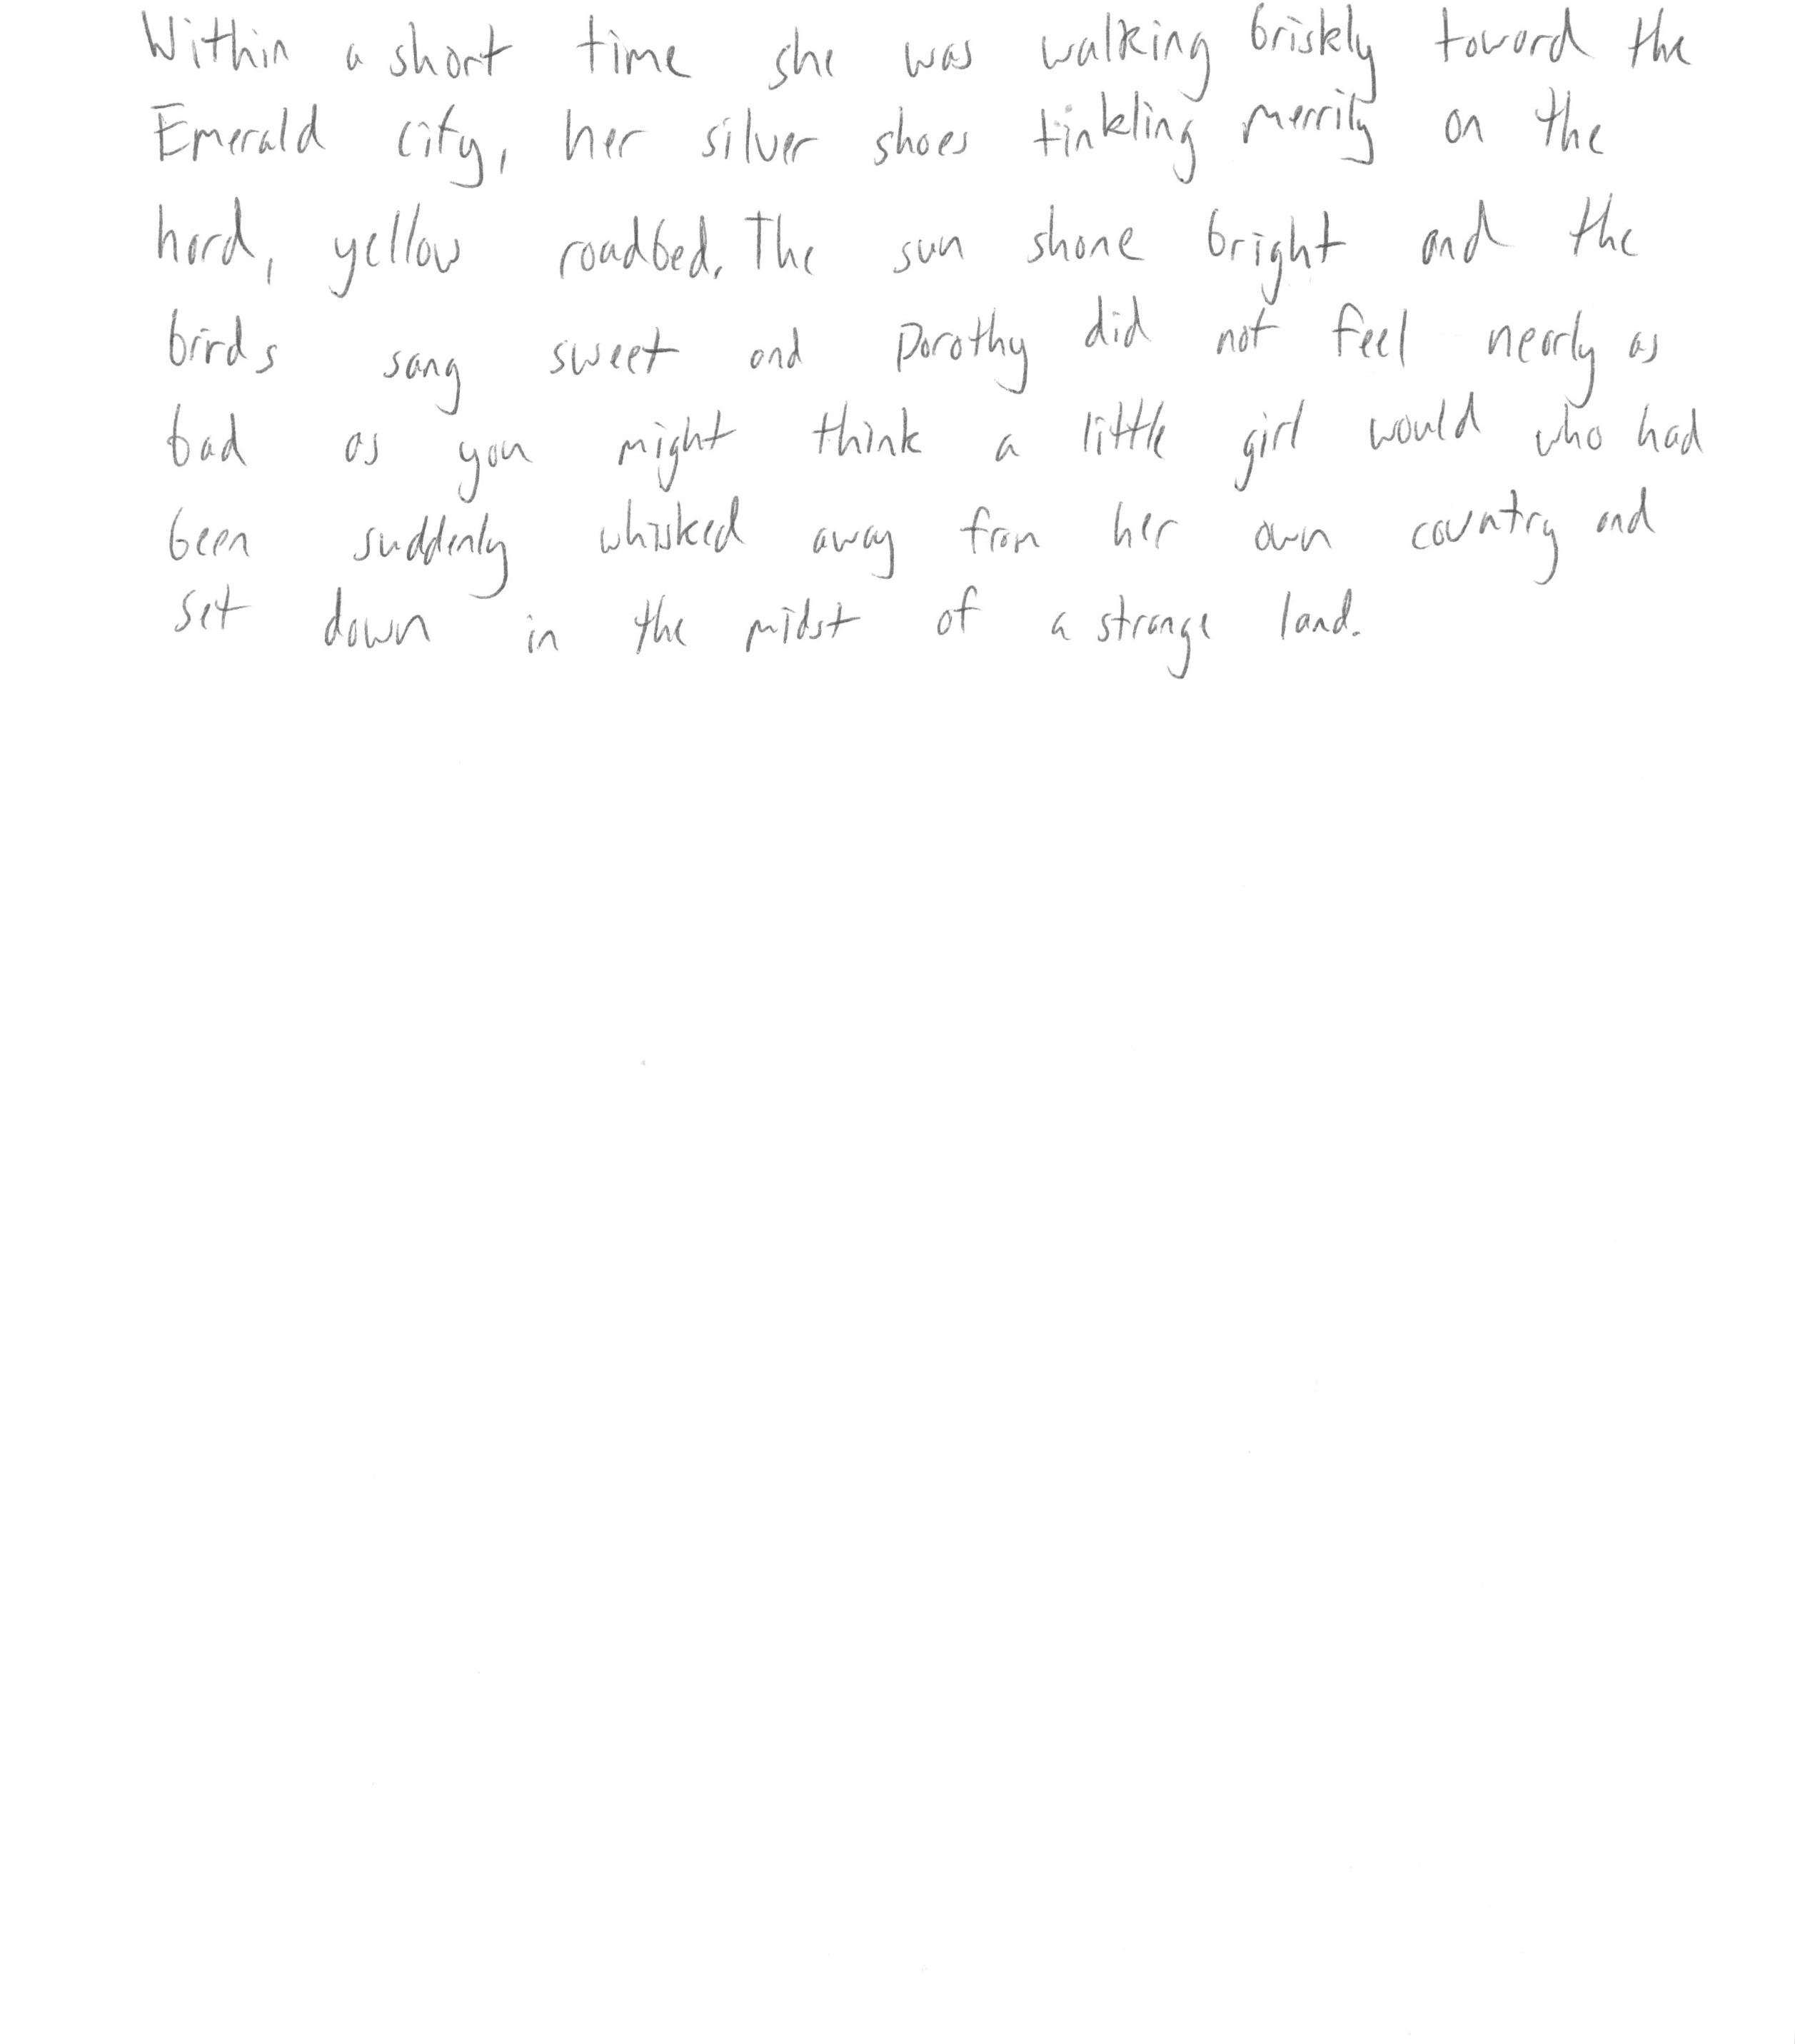 Within a short time she was walking briskly toward the
Emerald city, her silver shoes tinkling merrily on the
hard, yellow roadbed. The sun shone bright and the
birds sang sweet and Dorothy did not feel nearly as
bad as you might think a little girl would who had
been suddenly whisked away from her own country and
set down in the midst of a strange land.